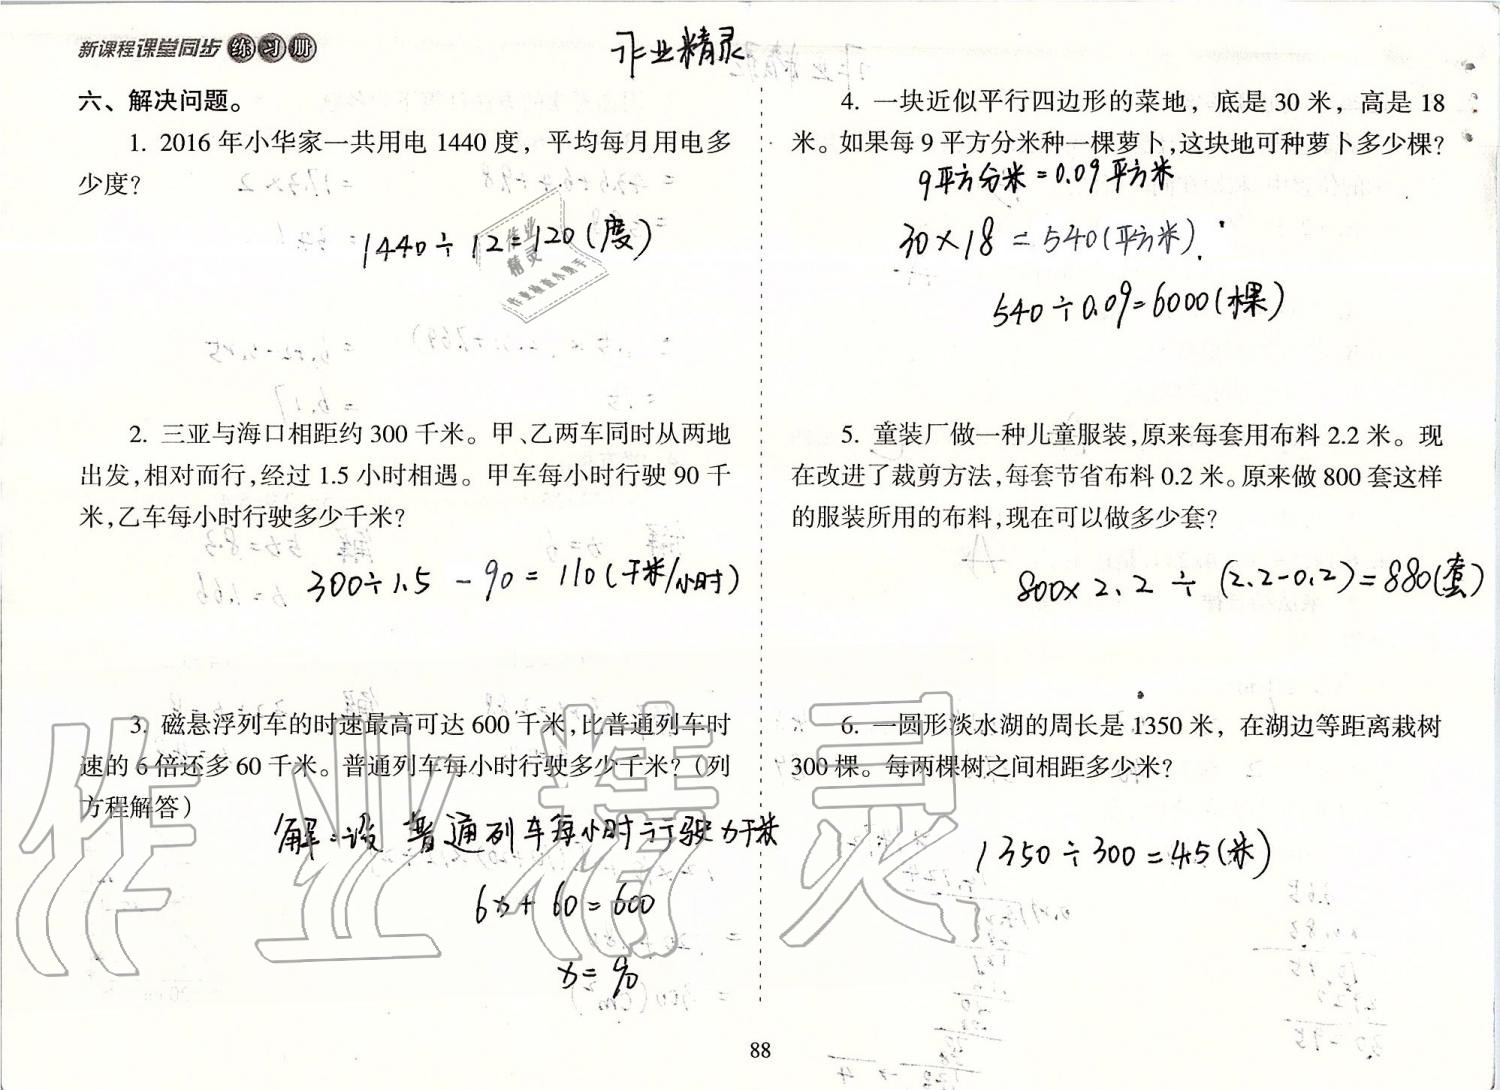 新课程课堂同步练习册
作业精灵
六、解决问题。
1. 2016 年小华家一共用电 1440 度，平均每月用电多
少度?
1440÷12=120(度)
2. 三亚与海口相距约 300 千米。甲、乙两车同时从两地
出发,相对而行,经过 1.5 小时相遇。甲车每小时行驶 90 千
米,乙车每小时行驶多少千米?
300÷1.5-90=110(千米/小时)
3. 磁悬浮列车的时速最高可达 600 千米,比普通列车时
速的 6 倍还多 60 千米。普通列车每小时行驶多少千米?(列
方程解答)
解:设普通列车每小时行驶x千米
6x+60=600
x=90
4. 一块近似平行四边形的菜地，底是 30 米，高是 18
米。如果每 9 平方分米种一棵萝卜,这块地可种萝卜多少棵?
9平方分米=0.09平方米
30×18=540(平方米).
540÷0.09=6000(棵)
5. 童装厂做一种儿童服装,原来每套用布料 2.2 米。现
在改进了裁剪方法,每套节省布料 0.2 米。原来做 800 套这样
的服装所用的布料,现在可以做多少套?
800×2.2÷(2.2-0.2)=880(套)
6. 一圆形淡水湖的周长是 1350 米，在湖边等距离栽树
300 棵。每两棵树之间相距多少米?
1350÷300=4.5(米)
作业精灵
88